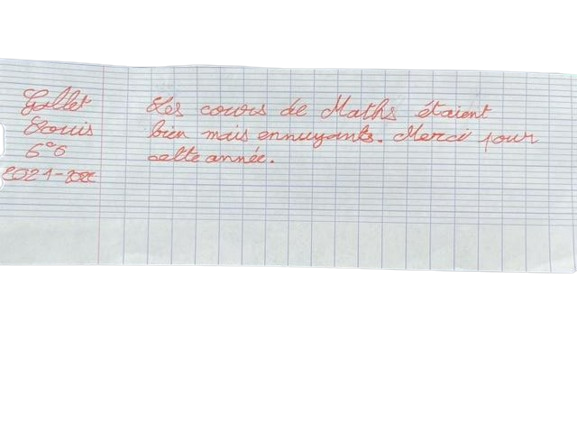 Gallet
Louis
6°6
2021-2022
Les cours de Maths étaient
bien mais ennuyants. Merci pour
cette année.